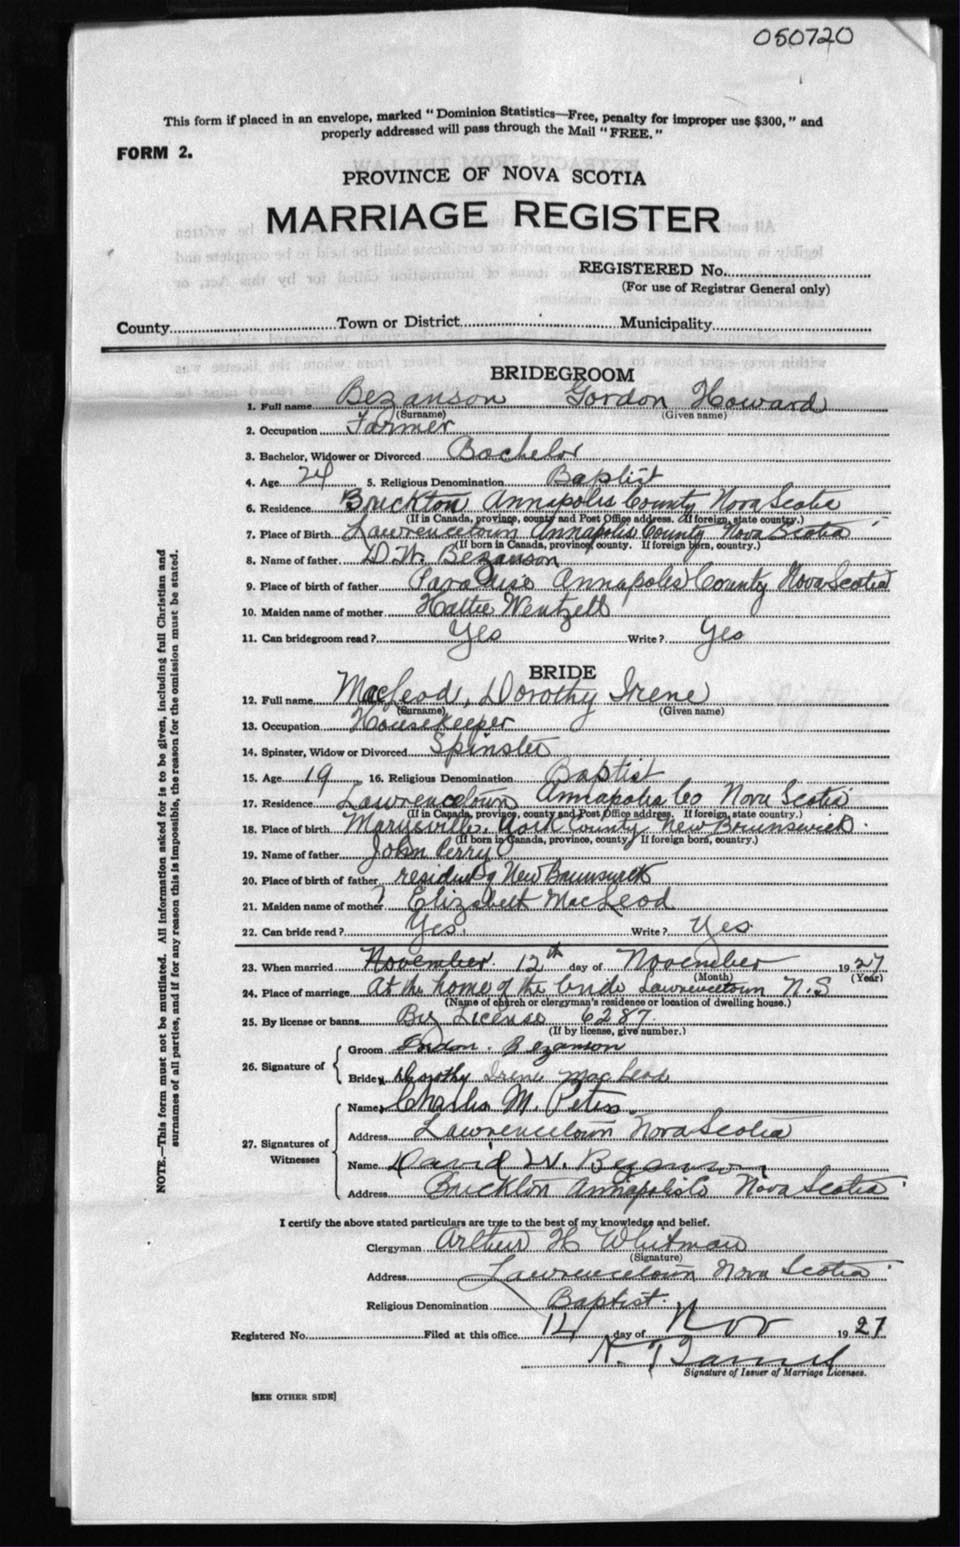 050720
This form if placed in an envelope, marked "Dominion Statistics—Free, penalty for improper use $300," and
properly addressed will pass through the Mail "FREE."
FORM 2.
PROVINCE OF NOVA SCOTIA
MARRIAGE REGISTER
REGISTERED No.
(For use of Registrar General only)
County Town or District Municipality
BRIDEGROOM
1. Full name Bezanson Gordon Howard
(Surname) (Given name)
2. Occupation Farmer
3. Bachelor, Widower or Divorced Bachelor
4. Age 24 5. Religious Denomination Baptist
6. Residence Brickton Annapolis County Nova Scotia
(If in Canada, province, county and Post Office address. If foreign, state country.)
7. Place of Birth Lawrencetown Annapolis County Nova Scotia
(If born in Canada, province, county. If foreign born, country.)
8. Name of father D. W. Bezanson
9. Place of birth of father Paradise Annapolis County Nova Scotia
10. Maiden name of mother Hattie Wentzell
11. Can bridegroom read? Yes Write? Yes
BRIDE
12. Full name MacLeod, Dorothy Irene
(Surname) (Given name)
13. Occupation Housekeeper
14. Spinster, Widow or Divorced Spinster
15. Age 19 16. Religious Denomination Baptist
17. Residence Lawrencetown Annapolis Co Nova Scotia
(If in Canada, province, county and Post Office address. If foreign, state country.)
18. Place of birth Marysville, York County New Brunswick
(If born in Canada, province, county. If foreign born, country.)
19. Name of father John Perry
20. Place of birth of father resident of New Brunswick
21. Maiden name of mother Elizabeth MacLeod
22. Can bride read? Yes Write? Yes
23. When married November 12th day of November 1927
(Month) (Year)
24. Place of marriage At the home of the bride Lawrencetown N.S
(Name of church or clergyman's residence or location of dwelling house.)
25. By license or banns By License 6287
(If by license, give number.)
26. Signature of
Groom Gordon Bezanson
Bride Dorothy Irene MacLeod
27. Signatures of Witnesses
Name Charles M. Peters
Address Lawrencetown Nova Scotia
Name David W. Bezanson
Address Brickton Annapolis Co Nova Scotia
I certify the above stated particulars are true to the best of my knowledge and belief.
Clergyman Arthur H Whitman
(Signature)
Address Lawrencetown Nova Scotia
Religious Denomination Baptist
Registered No. Filed at this office 14 day of Nov 1927
Signature of Issuer of Marriage Licenses.
[SEE OTHER SIDE]
NOTE.—This form must not be mutilated. All information asked for is to be given, including full Christian and
surnames of all parties, and if for any reason this is impossible, the reason for the omission must be stated.